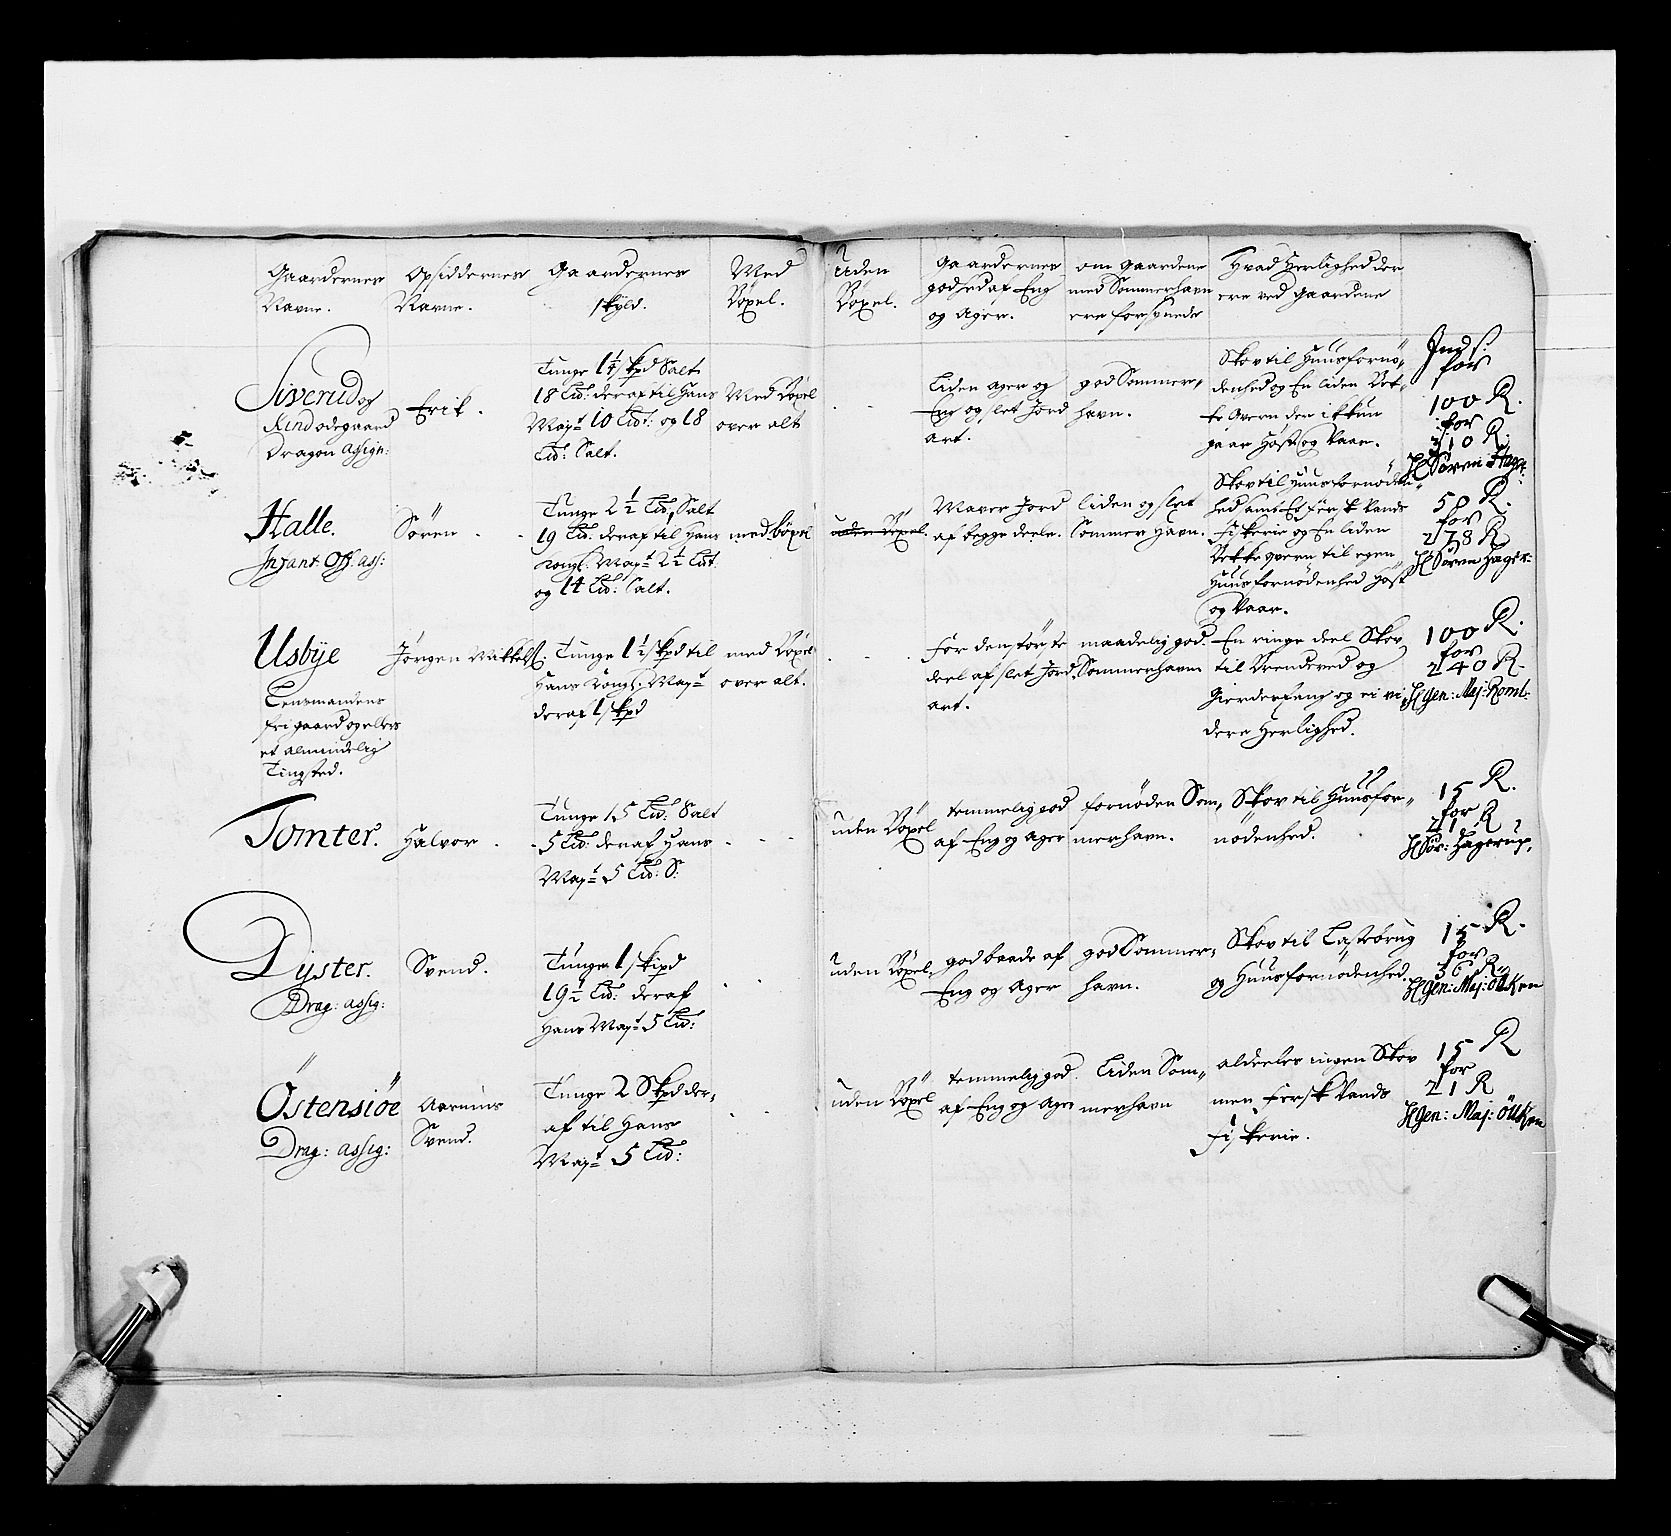 Gaardernes Navne.
Opsiddernes Navne.
Gaardernes skyld.
Med Böxel.
Uden Böxel.
Gaardernes godhed af Eng og Ager.
om Gaardene med Sommerhavn ere forsynede
Hvad Herlighed der ere ved Gaardene
Siverud og
Rindödegaard
Dragon Assign:
Erik.
Tunge 1¼ skpd Salt
18 Lid: deraf til Hans
Mayt 10 Lid: og 18
Lid: Salt.
Med Böxel
over alt
Liden ager og
Eng og slet Jord
art.
god Sommer-
havn.
Skov til Huusfornö-
denhed og En liden Bek-
ke qvern der ikkun
gaar Höst og Vaar.
Inds:
for
100 R.
for
210 R.
H Sören Hager:
Halle.
Infant: Off: ass:
Sören
Tunge 2½ Lid, Salt
19 Lid: deraf til Hans
Kongl: Mayt 2½ Lid:
og 14 Lid: Salt.
med böxel
uden Böxel.
Mager Jord
af begge deele.
liden og slet
Sommer havn.
Skov til Huusfornöden-
hed samt Et fersk Vands
Fiskerie og En liden
Bekke qvern til egen
Huusfornödenhed Höst
og Vaar.
50 R.
for
278 R
H Sören Hager:
Usbÿe
Lensmandens
fri gaard og ellers
et almindelig
Tingsted.
Jörgen Mikkels:
Tunge 1½ skpd til
Hans Kongl: Mayt
deraf 1 skpd
med Böxel
over alt.
For den störste
deel af slet Jord
art.
maadelig god
Sommerhavn
En ringe deel Skov
til Brendeved og
Gierdefang og ei vi-
dere Herlighed.
100 R.
for
240 R.
H Gen: Maj: Roml:
Tomter.
Halvor
Tunge 15 Lid: Salt
5 Lid: deraf Hans
Mayt 5 Lid: S:
uden Böxel
temmelig god
af Eng og Ager
fornöden Som-
merhavn.
Skov til Huusfor-
nödenhed.
15 R.
for
21 R
H Sör: Hagerup.
Dÿster.
Drag: assig:
Svend.
Tunge 1 skpd
19½ Lid: deraf
Hans Mayt 5 Lid:
uden Böxel.
god baade af
Eng og Ager
god Sommer-
havn.
Skov til Lastbrug
og Huusfornödenhed.
15 R.
for
36 R.
H Gen: Maj: Ötken
Östensiöe
Drag: assig:
Svend.
Tunge 2 Skpd der-
af til Hans
Mayt 5 Lid:
uden Böxel
temmelig god
af Eng og Ager
Liden Som-
merhavn
aldeeles ingen Skov
men Fersk Vands
Fiskerie.
15 R
for
21 R
H Gen: Maj: Ötken